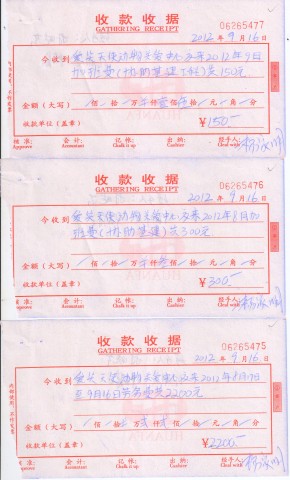 收款收据
GATHERING RECEIPT
06265477
2012年9月16日
今收到 爱笑天使动物关爱中心发来2012年9月
加班费(协助基建工程)元150元
金额(大写) 佰 拾 万 仟 壹佰 拾 元 角 分
收款单位(盖章) ¥150-
核准: 会计: 记帐: 出纳: 经手人:
Approve Accountant Chalk it up Cashier Deal with
收款收据
GATHERING RECEIPT
06265476
2012年9月16日
今收到 爱笑天使动物关爱中心发来2012年8月加
班费(协助基建)共300元
金额(大写) 佰 拾 万 仟 叁佰 拾 元 角 分
收款单位(盖章) ¥300-
核准: 会计: 记帐: 出纳: 经手人:
Approve Accountant Chalk it up Cashier Deal with
收款收据
GATHERING RECEIPT
06265475
2012年9月16日
今收到 爱笑天使动物关爱中心发来2012年8月17日
至9月16日劳务费共2200元
金额(大写) 佰 拾 万 贰仟 贰佰 拾 元 角 分
收款单位(盖章) ¥2200-
核准: 会计: 记帐: 出纳: 经手人:
Approve Accountant Chalk it up Cashier Deal with